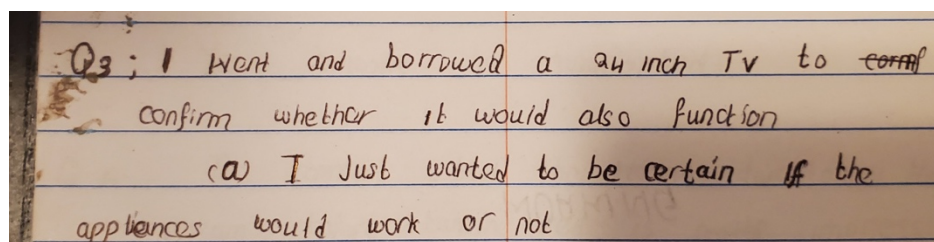 Q3; I went and borrowed a 24 inch TV to
confirm whether it would also function
(a) I Just wanted to be certain if the
appliances would work or not